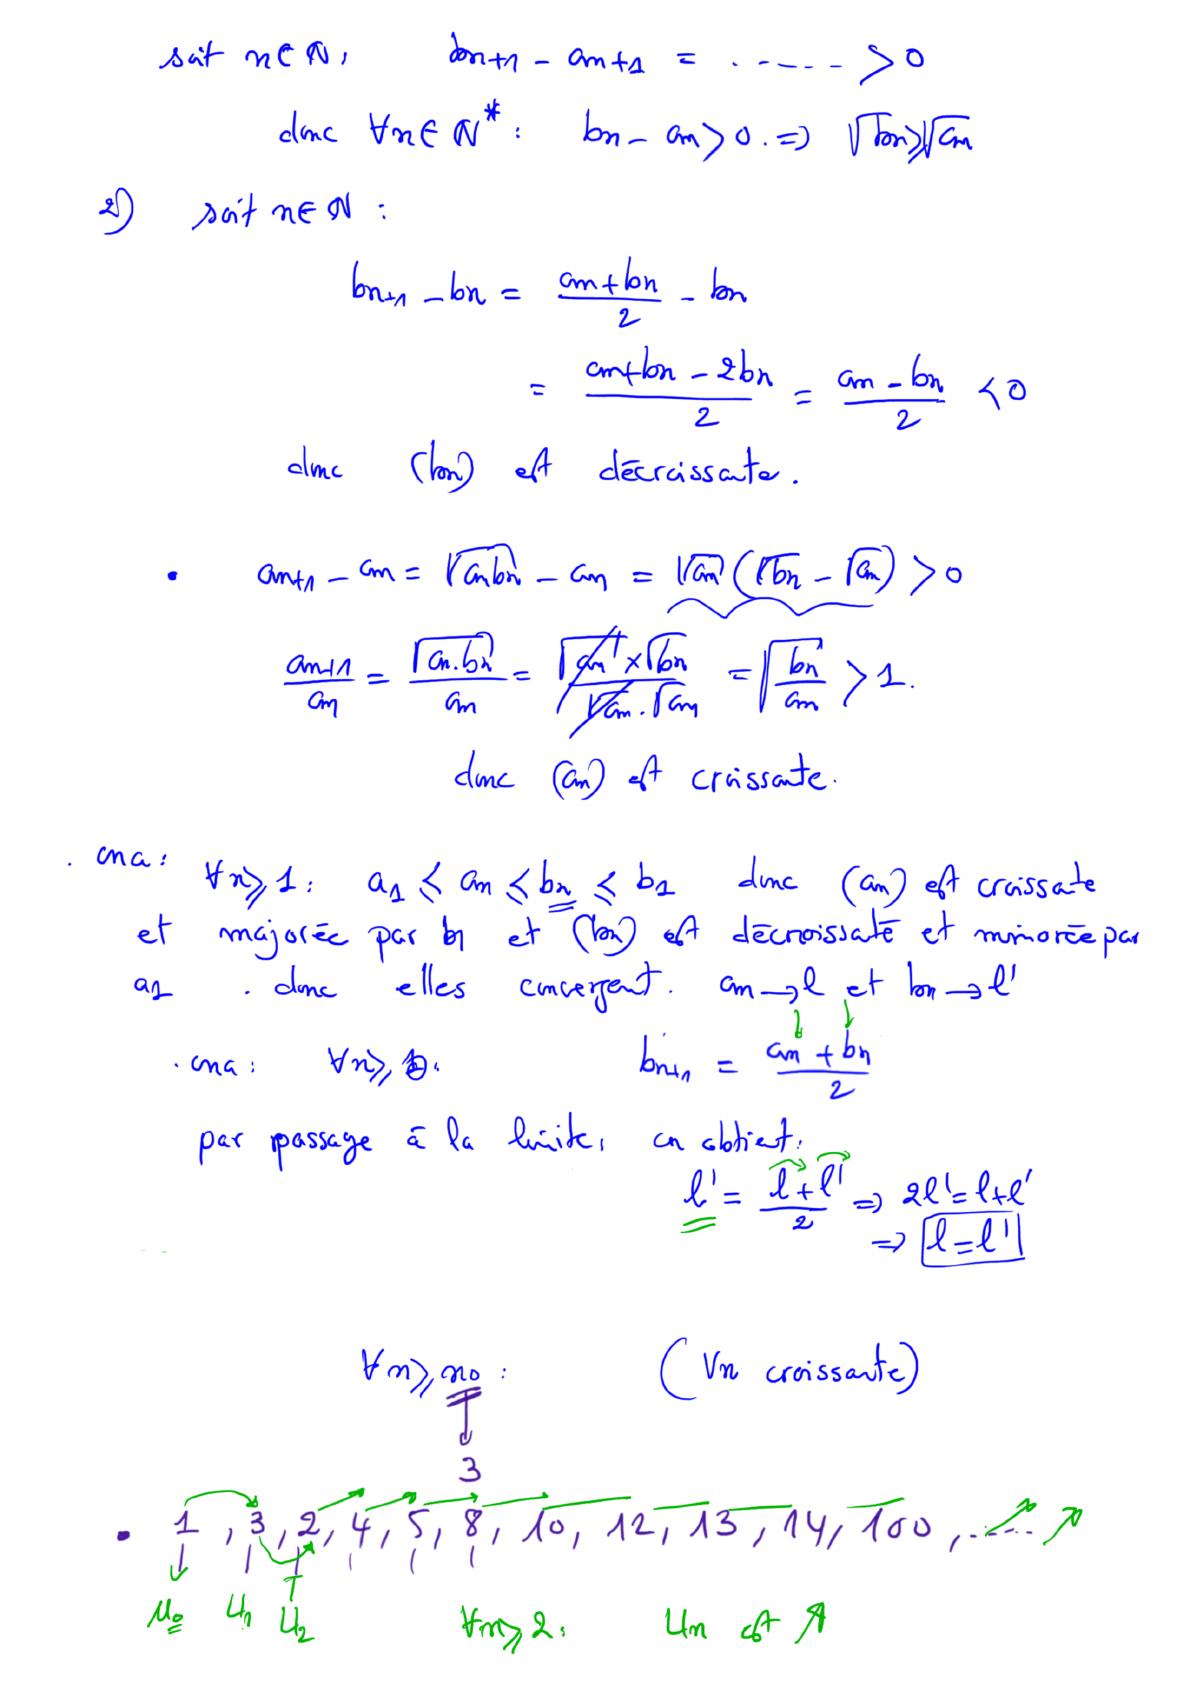 soit n∈ℕ, bn+1 - an+1 = ....... > 0
donc ∀n∈ℕ* : bn - an > 0. ⇒ √bn ⩾ √an
2) soit n∈ℕ :
bn+1 - bn = (an + bn)/2 - bn
= (an + bn - 2bn)/2 = (an - bn)/2 < 0
donc (bn) est décroissante.
• an+1 - an = √(an bn) - an = √an (√bn - √an) > 0
an+1/an = √(an.bn)/an = (√an × √bn)/(√an . √an) = √(bn/an) > 1.
donc (an) est croissante.
. ona : ∀n⩾1 : a1 ⩽ an ⩽ bn ⩽ b1 donc (an) est croissate
et majorée par b1 et (bn) est décroissate et minorée par
a1 . donc elles convergent. an → l et bn → l'
. ona : ∀n⩾ bn+1 = (an + bn)/2
par passage à la limite, on obtient :
l' = (l + l')/2 ⇒ 2l' = l + l'
⇒ l = l'
∀n⩾n0 : (Vn croissante)
3
• 1 , 3 , 2 , 4 , 5 , 8 , 10 , 12 , 13 , 14 , 100 , .....
U0 U1 U2 ∀n⩾2 : Un est ↗